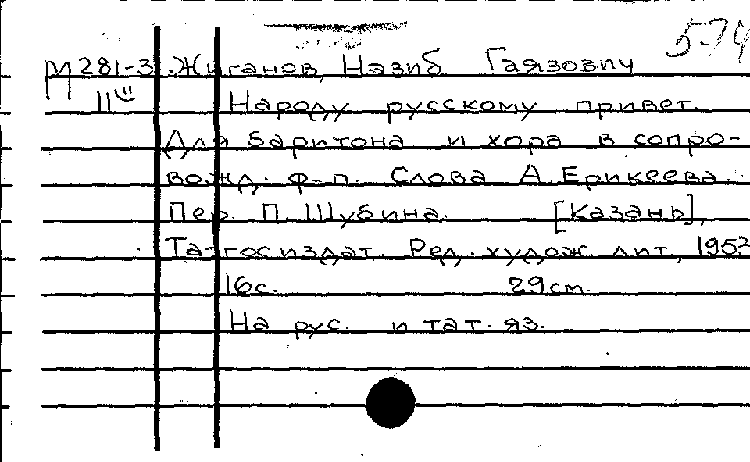 574
М 281-3 Жиганов, Назиб Гаязович
11 Народу русскому привет.
Для баритона и хора в сопро-
вожд. ф-п. Слова А. Ерикеева.
Пер. П. Шубина. [Казань],
Татгосиздат. Ред. худож. лит., 1952
16с. 29ст.
На рус. и тат. яз.